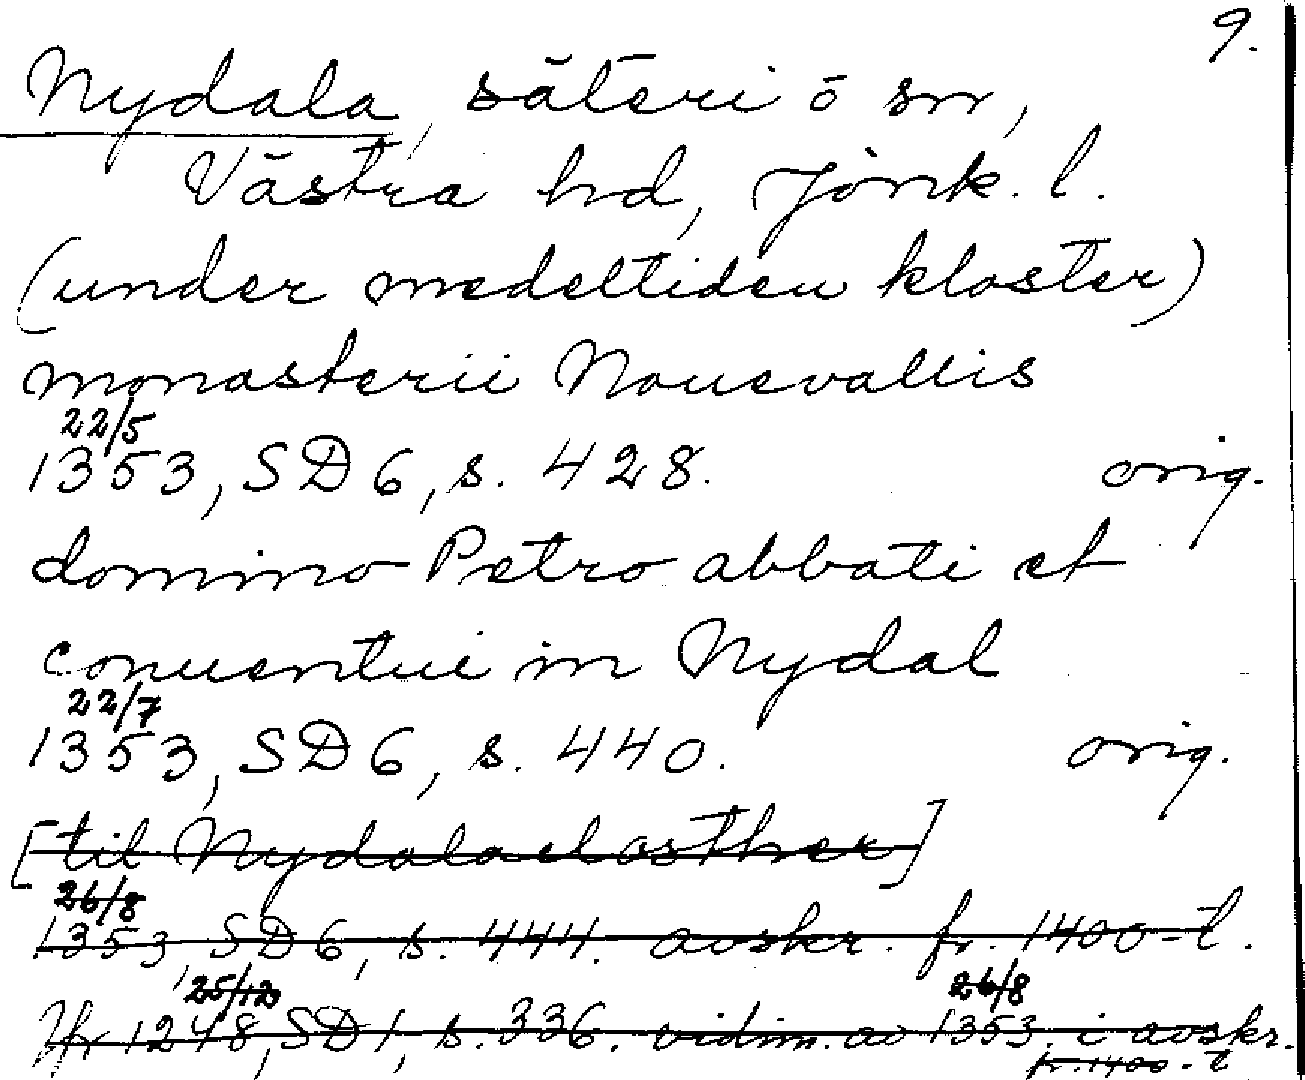 9.
Nydala, säteri o sn,
Västra hd, Jönk. l.
(under medeltiden kloster)
monasterii Nouevallis
22/5
1353, SD 6, s. 428. orig.
domino Petro abbati et
conuentui in Nydal
22/7
1353, SD 6, s. 440. orig.
[til Nydala closther]
26/8
1353, SD 6, s. 444. avskr. fr. 1400-t.
25/12 26/8
Jfr 1248, SD 1, s. 336. vidim. av 1353 i avskr.
fr. 1400-t